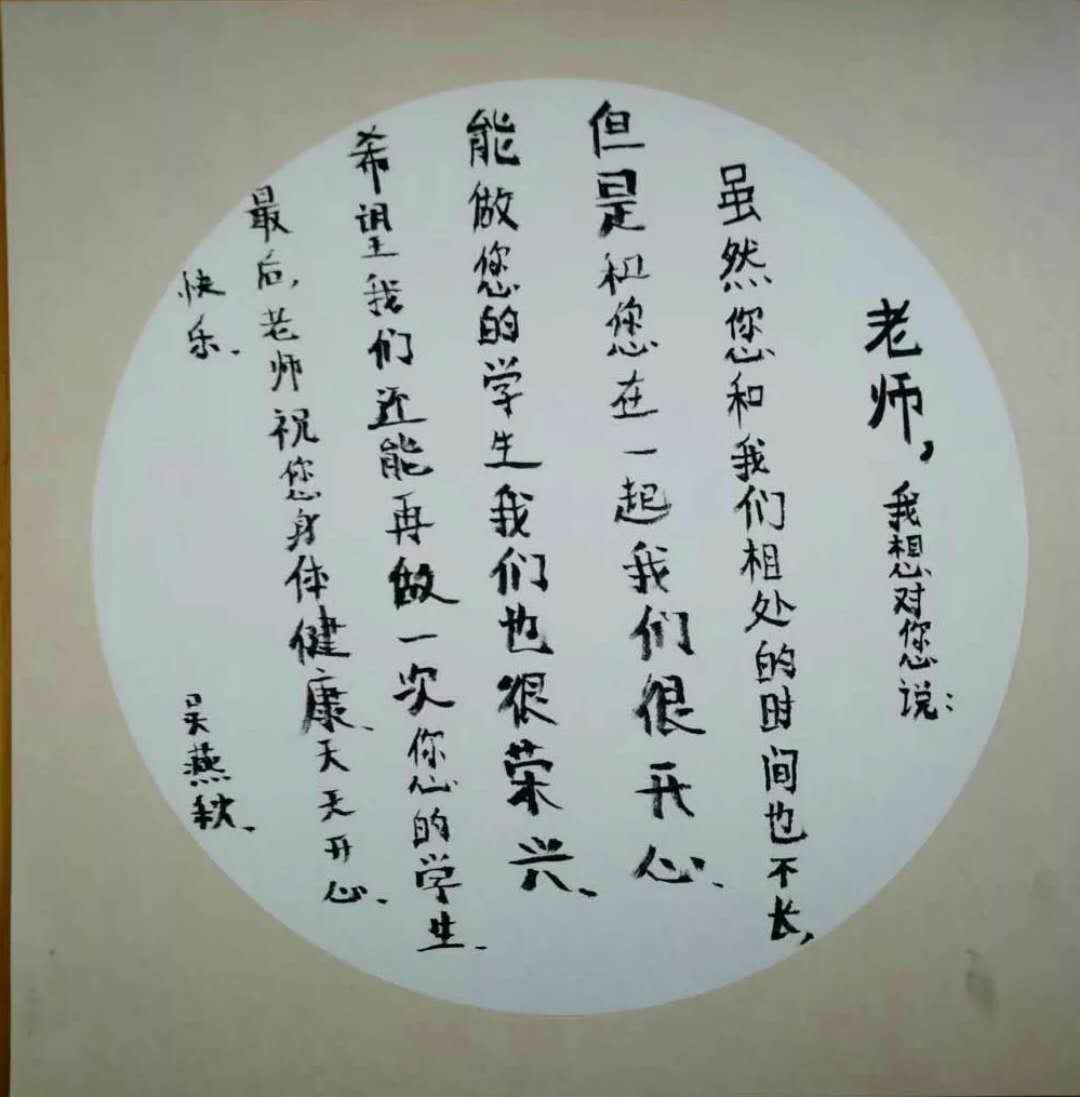 老师,我想对您说:
虽然您和我们相处的时间也不长,
但是和您在一起我们很开心、
能做您的学生我们也很荣兴、
希望我们还能再做一次您的学生、
最后,老师祝您身体健康、天天开心、
快乐、
吴燕秋、